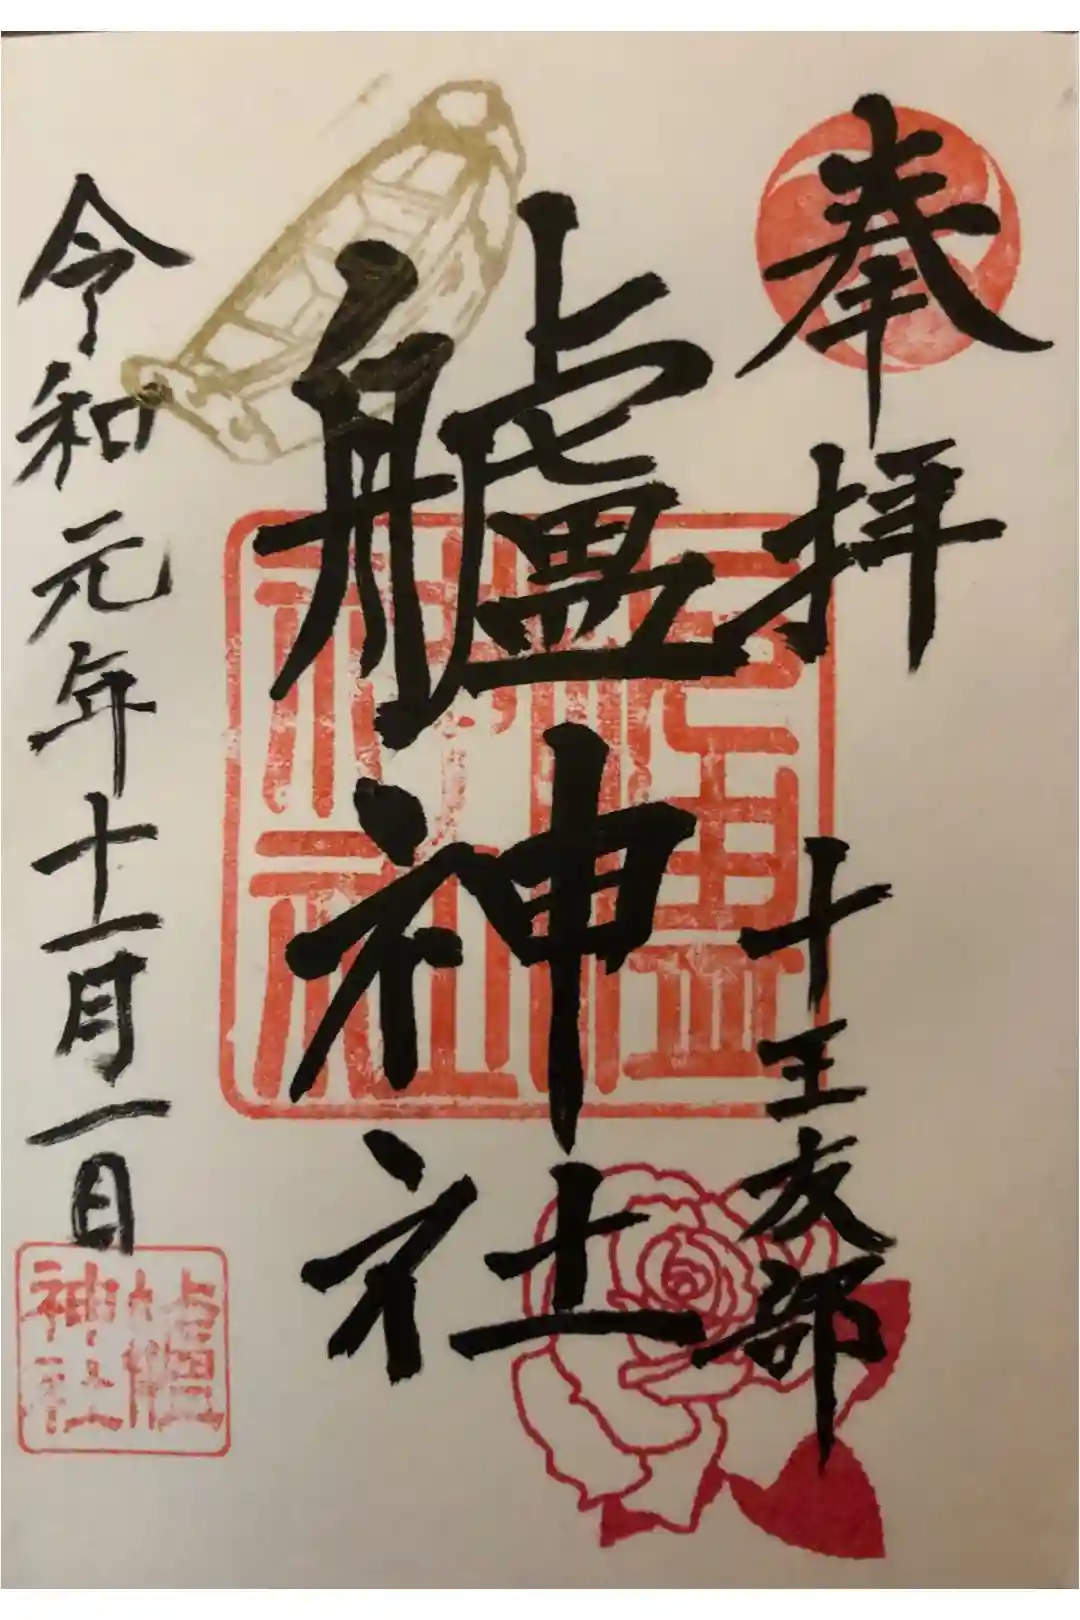 奉拝
十王友部
艫神社
令和元年十一月一日
艫神社